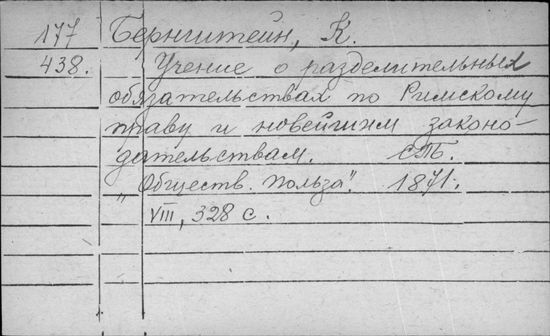 177 Бернштейн, К.
438. Учение о разделительных
обязательствах по Римскому
праву и новейшим законо-
дательствам. СПБ.
„Обществ. Польза". 1871.
VIII, 328 с.